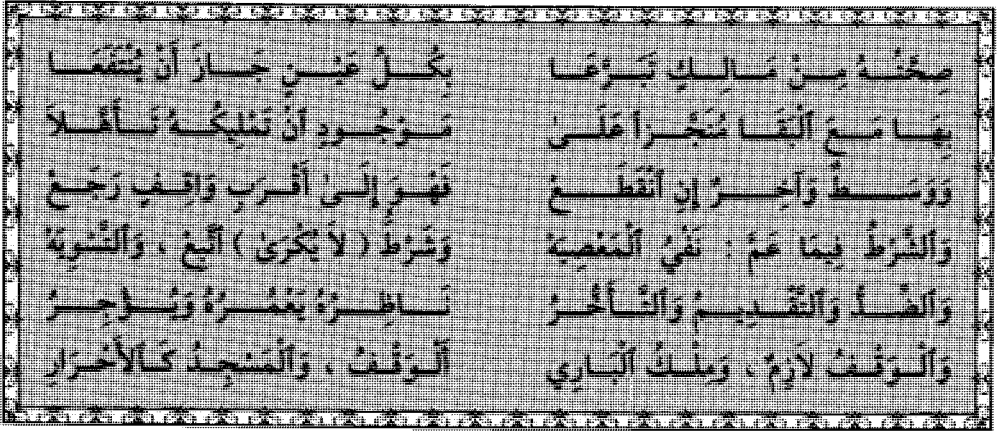 صِحَّتُهُ مِنْ مَالِكٍ تَبَرَّعَا بِكُلِّ عَيْنٍ جَازَ أَنْ يُنْتَفَعَا
بِهَا مَعَ ٱلْبَقَا مُنَجَّزاً عَلَىٰ مَوْجُودٍ ٱنْ تَمْلِيكُهُ تَأَهَّلاَ
وَوَسَطٌ وَآخِرٌ إِنِ ٱنْقَطَعْ فَهْوَ إِلَىٰ أَقْرَبِ وَاقِفٍ رَجَعْ
وَٱلشَّرْطُ فِيمَا عَمَّ : نَفْيُ ٱلْمَعْصِيَهْ وَشَرْطُ ( لاَ يُكْرَىٰ ) ٱتُّبِعْ ، وَٱلتَّسْوِيَهْ
وَٱلضِّدُّ وَٱلتَّقْدِيمُ وَٱلتَّأَخُّرُ نَاظِرُهُ يَعْمُرُهُ وَيُؤْجِرُ
وَٱلْوَقْفُ لاَزِمٌ ، وَمِلْكُ ٱلْبَارِي ٱلْوَقْفُ ، وَٱلْمَسْجِدُ كَٱلأَحْرَارِ